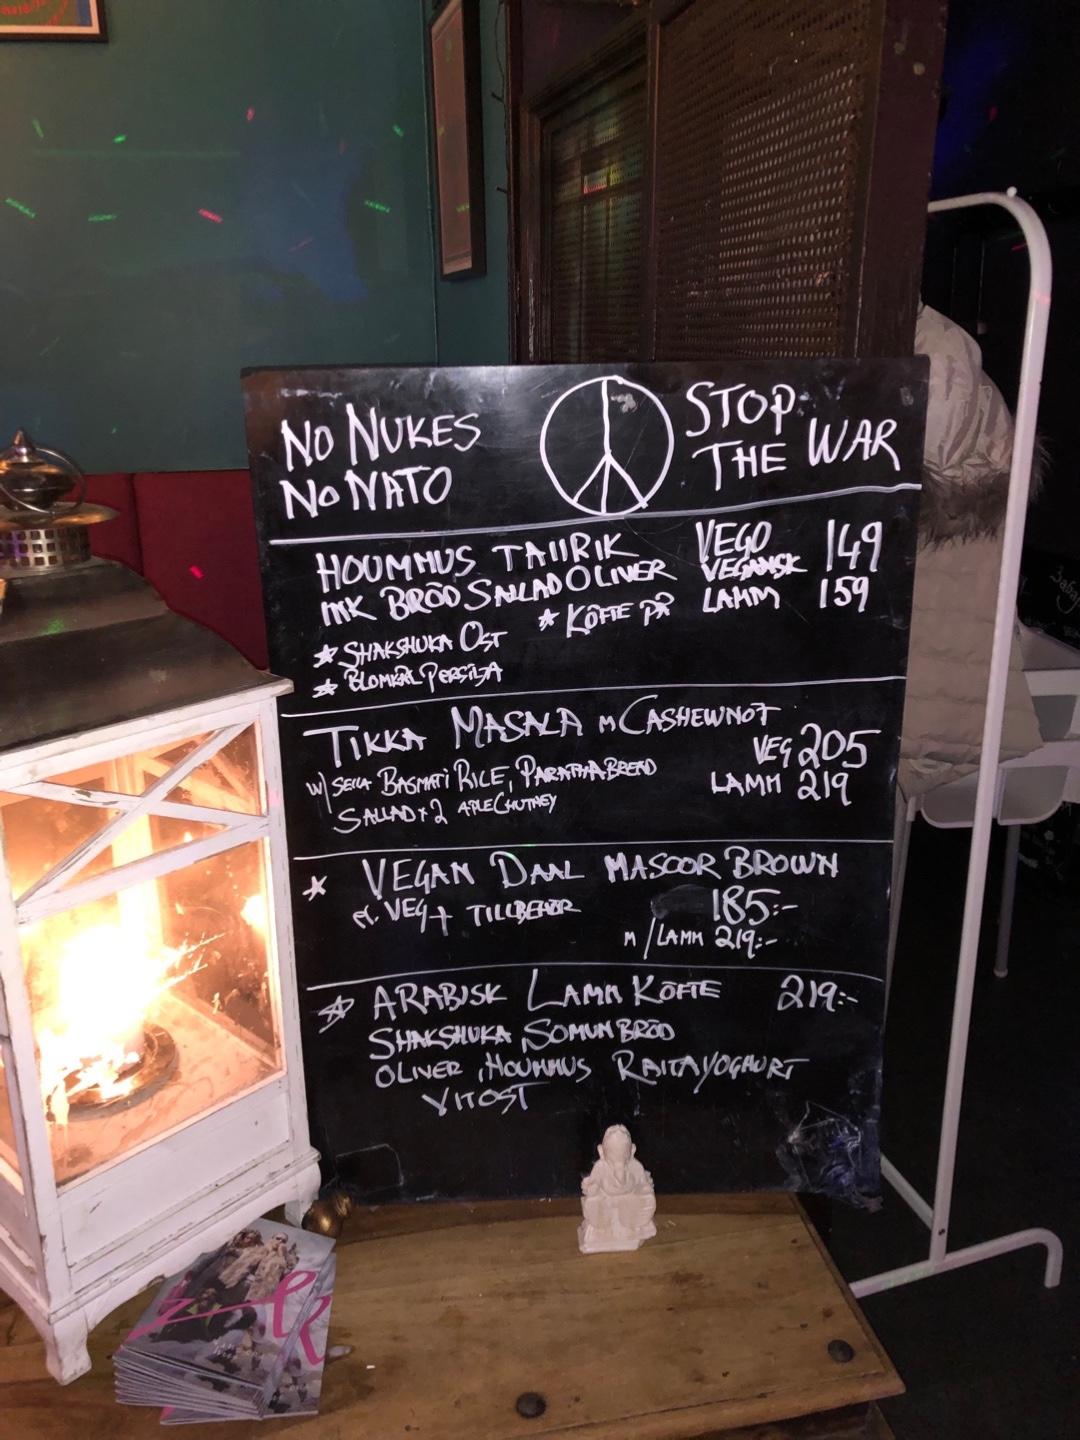 No NUKES
No NATO
STOP
THE WAR
HOUMMUS TAIIRIK VEGO 149
INK BRÖD SALLAD OLIVER VEGANSK
LAMM 159
★ KÖFTE PÅ
★ SHAKSHUKA OST
★ BLOMKÅL PERSILJA
TIKKA MASALA m CASHEWNOT
VEG 205
W/ SELLA BASMATI RICE, PARATHA BREAD
LAMM 219
SALLAD x 2 APLE CHUTNEY
★ VEGAN DAAL MASOOR BROWN
VEG + TILLBEHÖR 185:-
M/LAMM 219:-
★ ARABISK LAMM KÖFTE 219:-
SHAKSHUKA, SOMUN BRÖD
OLIVER, HOUMMUS RAITAYOGHURT
VITOST